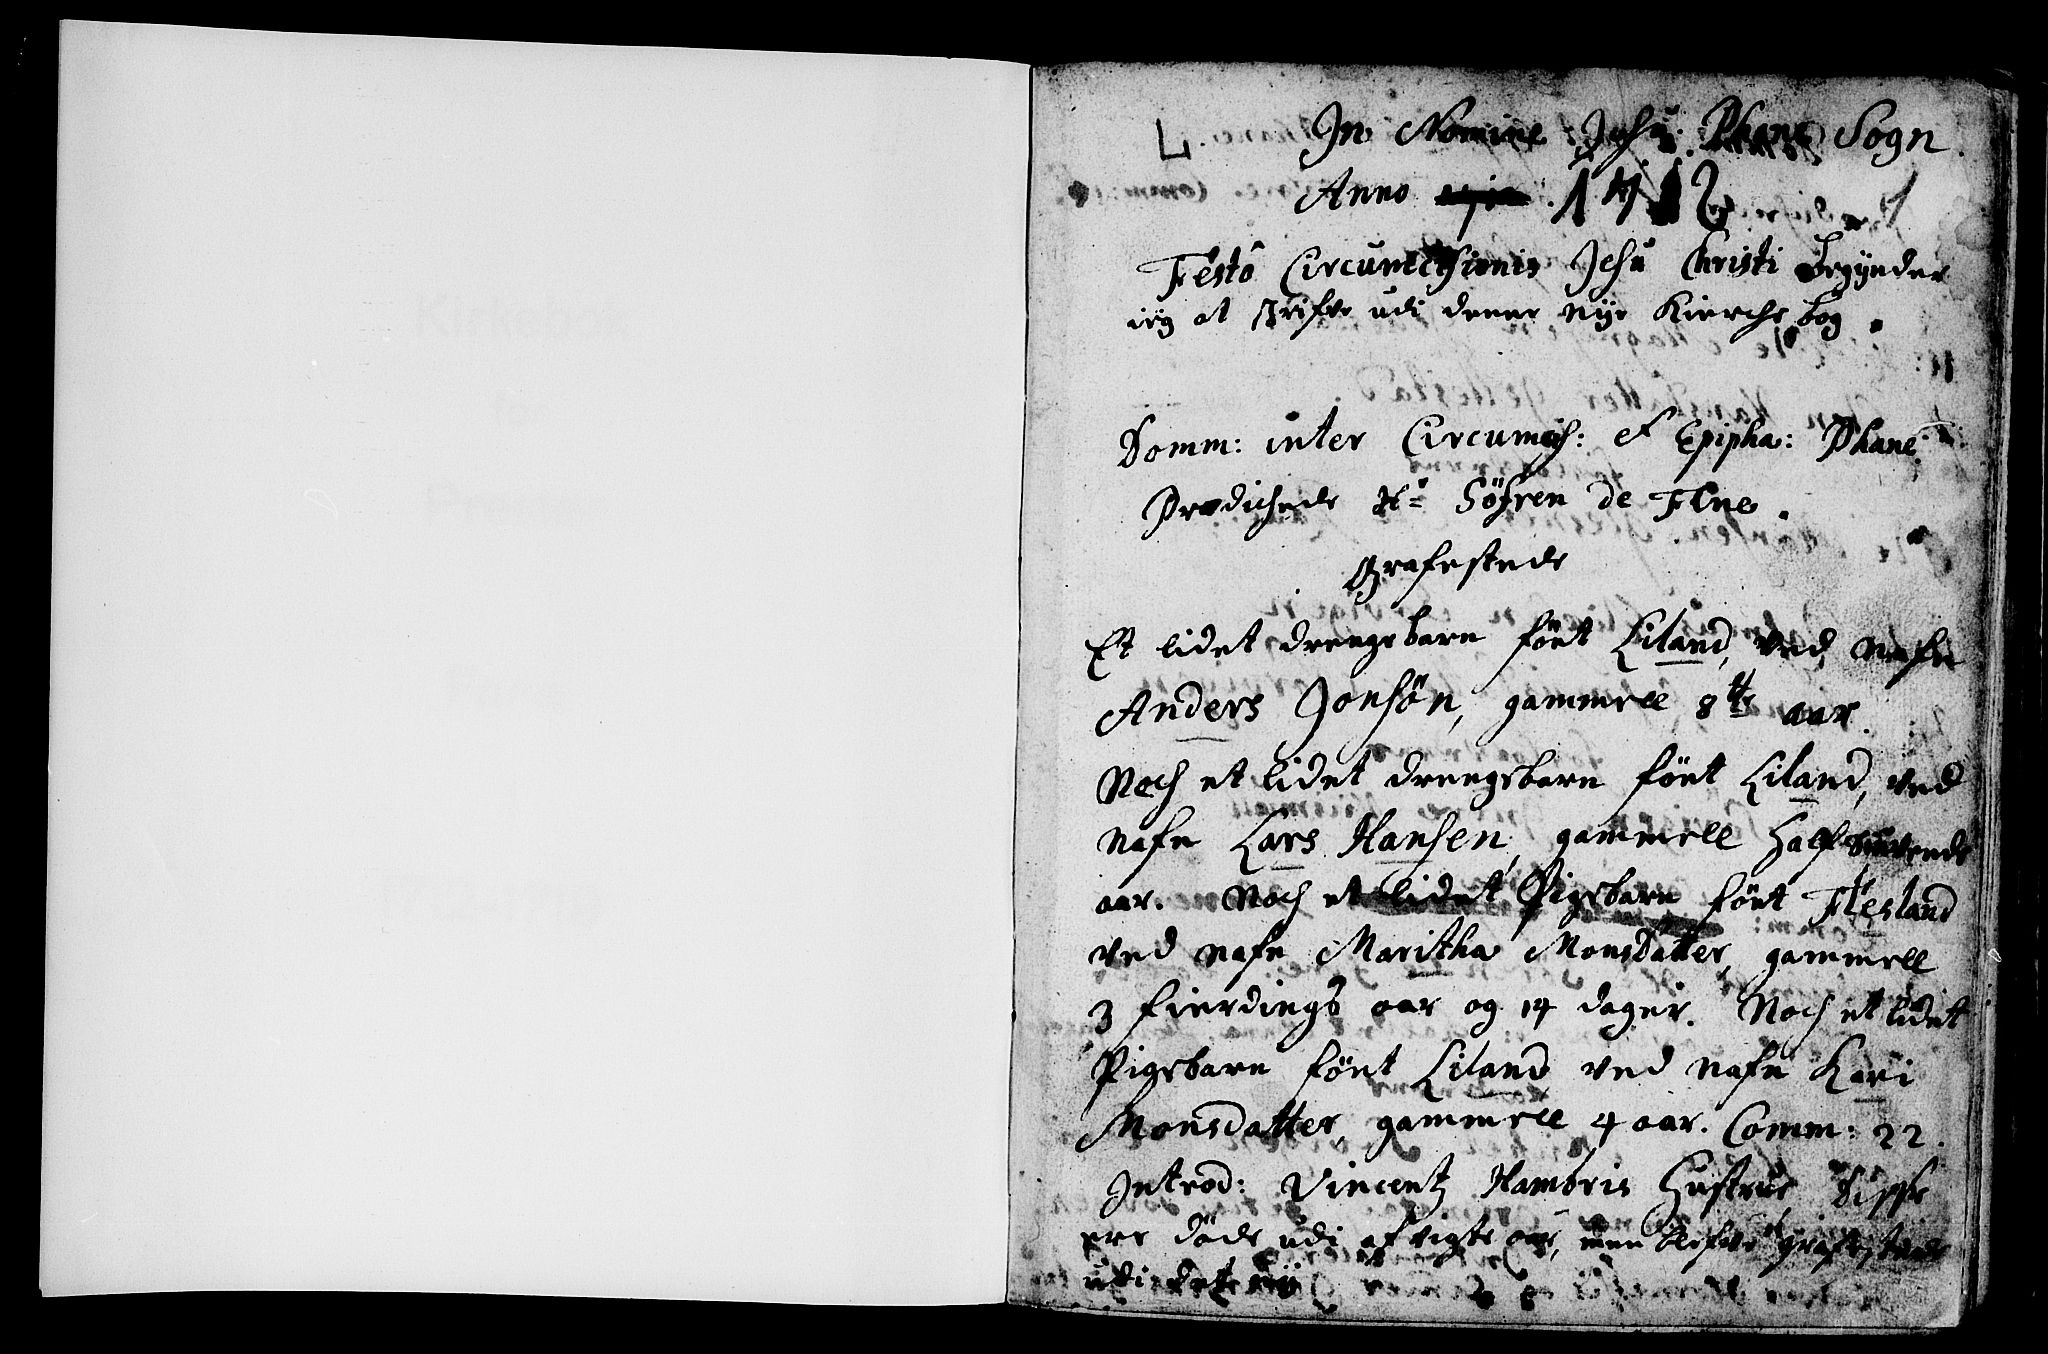 L. In Nomine Jesu. Phane Sogn.
Anno 1712
1
Festo Circumcisionis Jesu Christi Begynder
ieg at skrifve udi denne nye Kierche bog.
Domm: inter Circumcis: et Epipha: Phane
Prædichede Hr Söfren de Fine.
Grafestede
Et lidet drengebarn födt Liland, ved nafn
Anders Jonsön, gammell 8te aar.
Noch et lidet drengebarn födt Liland, ved
nafn Lars Hansen, gammell half
aar. Noch et lidet Pigebarn födt Flesland
ved nafn Maritha Monsdatter, gammell
3 fierdings aar og 14 dager. Noch et lidet
Pigebarn födt Liland ved nafn Kari
Monsdatter, gammell 4 aar. Comm: 22.
Introd: Vincentz Hambris Hustrue Disse
ere döde udi afvigte aar, men blefve
udi det nii